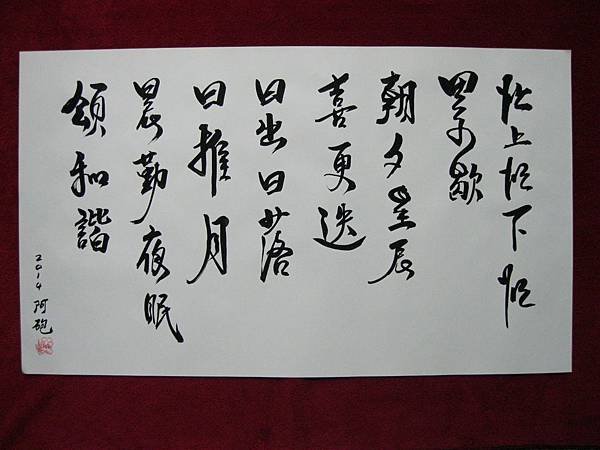 忙上忙下忙
累歇
朝夕星辰
喜更迭
日出日落
日推月
晨勤夜眠
頌和諧
2014 阿砲